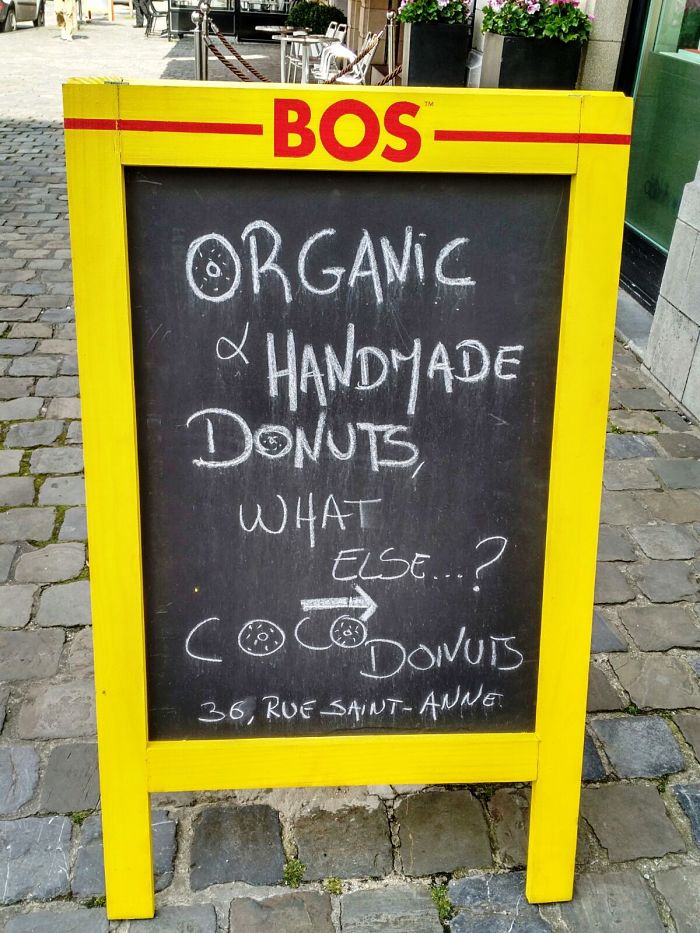 BOS™
ORGANIC
& HANDMADE
DONUTS,
WHAT
ELSE...?
COCO DONUTS
36, RUE SAINT-ANNE